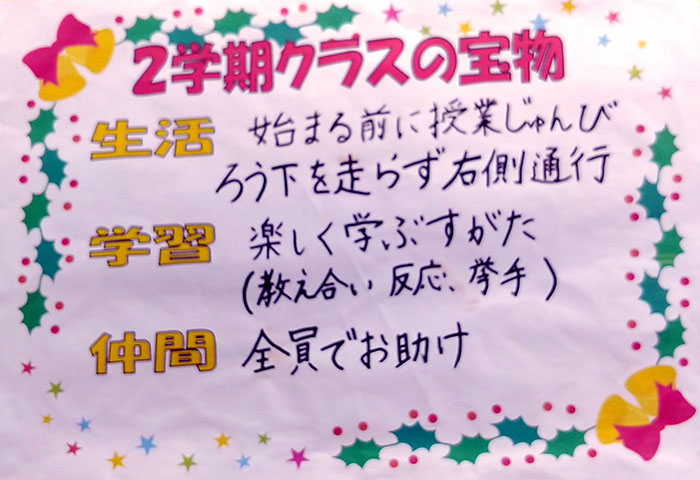 2学期クラスの宝物
生活 始まる前に授業じゅんび
ろう下を走らず右側通行
学習 楽しく学ぶすがた
(教え合い 反応、挙手)
仲間 全員でお助け